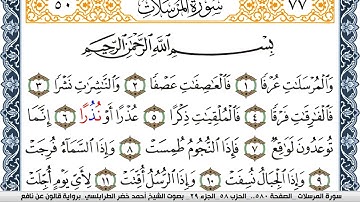 ٥٠ سُورَةُ المُرْسَلَاتِ ٧٧
بِسْمِ اللَّهِ الرَّحْمَٰنِ الرَّحِيمِ
وَالْمُرْسَلَٰتِ عُرْفًا ١ فَالْعَٰصِفَٰتِ عَصْفًا ٢ وَالنَّٰشِرَٰتِ نَشْرًا ٣
فَالْفَٰرِقَٰتِ فَرْقًا ٤ فَالْمُلْقِيَٰتِ ذِكْرًا ٥ عُذْرًا أَوْ نُذُرًا ٦ إِنَّمَا
تُوعَدُونَ لَوَٰقِعٌ ٧ فَإِذَا النُّجُومُ طُمِسَتْ ٨ وَإِذَا السَّمَآءُ فُرِجَتْ
٩ وَإِذَا الْجِبَالُ نُسِفَتْ ١٠ وَإِذَا الرُّسُلُ أُقِّتَتْ ١١ لِأَيِّ يَوْمٍ أُجِّلَتْ
سورة المرسلات الصفحة ٥٨٠... الحزب ٥٨ الجزء ٢٩ بصوت الشيخ أحمد خضر الطرابلسي برواية قالون عن نافع